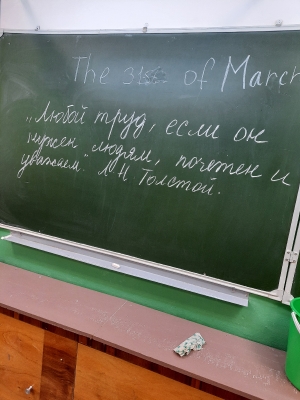 The 31st of March
„Любой труд, если он
нужен людям, почетен и
уважаем". Л.Н Толстой.